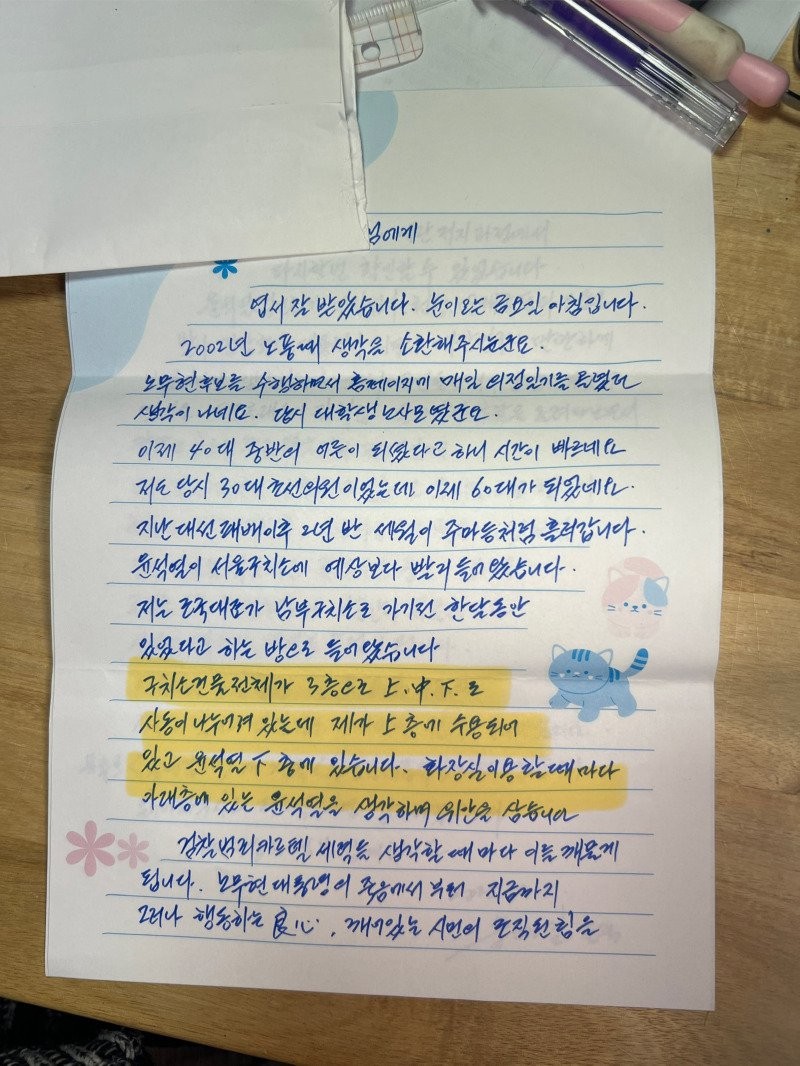 님에게
엽서 잘 받았습니다. 눈이오는 금요일 아침입니다.
2002년 노풍때 생각을 소환해주시는군요.
노무현후보를 수행하면서 홈페이지에 매일 의정일기를 올렸던
생각이 나네요. 당시 대학생 노사모였군요.
이제 40대 중반의 어른이 되셨다고 하니 시간이 빠르네요
저도 당시 30대 초선의원이었는데 이제 60대가 되었네요.
지난대선패배이후 2년 반 세월이 주마등처럼 흘러갑니다.
윤석열이 서울구치소에 예상보다 빨리 들어왔습니다.
저는 조국대표가 남부구치소로 가기전 한달동안
있었다고 하는 방으로 들어왔습니다
구치소건물전체가 3층으로 上.中.下.로
사동이 나누어져 있는데 제가 上층에 수용되어
있고 윤석열 下층에 있습니다. 화장실이용할때마다
아래층에 있는 윤석열을 생각하며 위안을 삼습니다
검찰범죄카르텔 세력을 생각할 때마다 이를 깨물게
됩니다. 노무현대통령의 죽음에서부터 지금까지
그러나 행동하는 良心, 깨어있는 시민의 조직된힘을